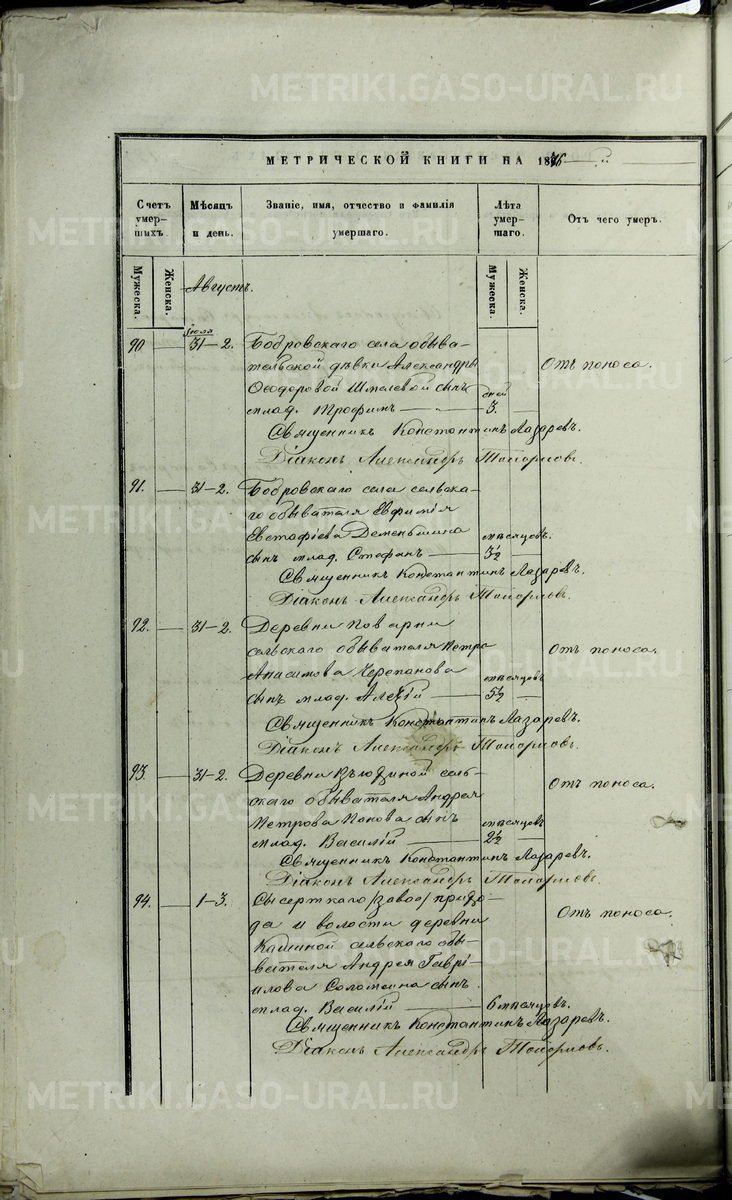 METRIKI.GASO-URAL.RU
МЕТРИЧЕСКОЙ КНИГИ НА 1876
Счетъ умер-шихъ.
Мѣсяцъ и день.
Званіе, имя, отчество и фамилія умершаго.
Лѣта умер-шаго.
Отъ чего умеръ.
Мужеска.
Женска.
Мужеска.
Женска.
Августъ.
Іюля
90. 31-2. Бобровскаго села обыва-
тельской дѣвки Александры
Ѳеодоровой Шмелевой сынъ дней
млад. Трофимъ 3. Отъ поноса.
Священникъ Константинъ Лазаревъ.
Діаконъ Александръ
91. 31-2. Бобровскаго села сельска-
го обывателя Евфимія
Евстафіева Деменьшина мѣсяцовъ.
сынъ млад. Стефанъ 3½
Священникъ Константинъ Лазаревъ.
Діаконъ Александръ
92. 31-2. Деревни Поварни
сельскаго обывателя Петра Отъ поноса.
Анисимова Черепанова мѣсяцовъ
сынъ млад. Алексій 5½
Священникъ Константинъ Лазаревъ.
Діаконъ Александръ
93. 31-2. Деревни сель-
скаго обывателя Андрея Отъ поноса.
Петрова Попова сынъ мѣсяцовъ
млад. Василій 2½
Священникъ Константинъ Лазаревъ.
Діаконъ Александръ
94. 1-3. Сысертскаго /завод/ прихо-
да и волости деревни Отъ поноса.
Кашиной сельскаго обы-
вателя Андрея Гаврі-
илова Соломеина сынъ
млад. Василій 6 мѣсяцовъ.
Священникъ Константинъ Лазаревъ.
Діаконъ Александръ